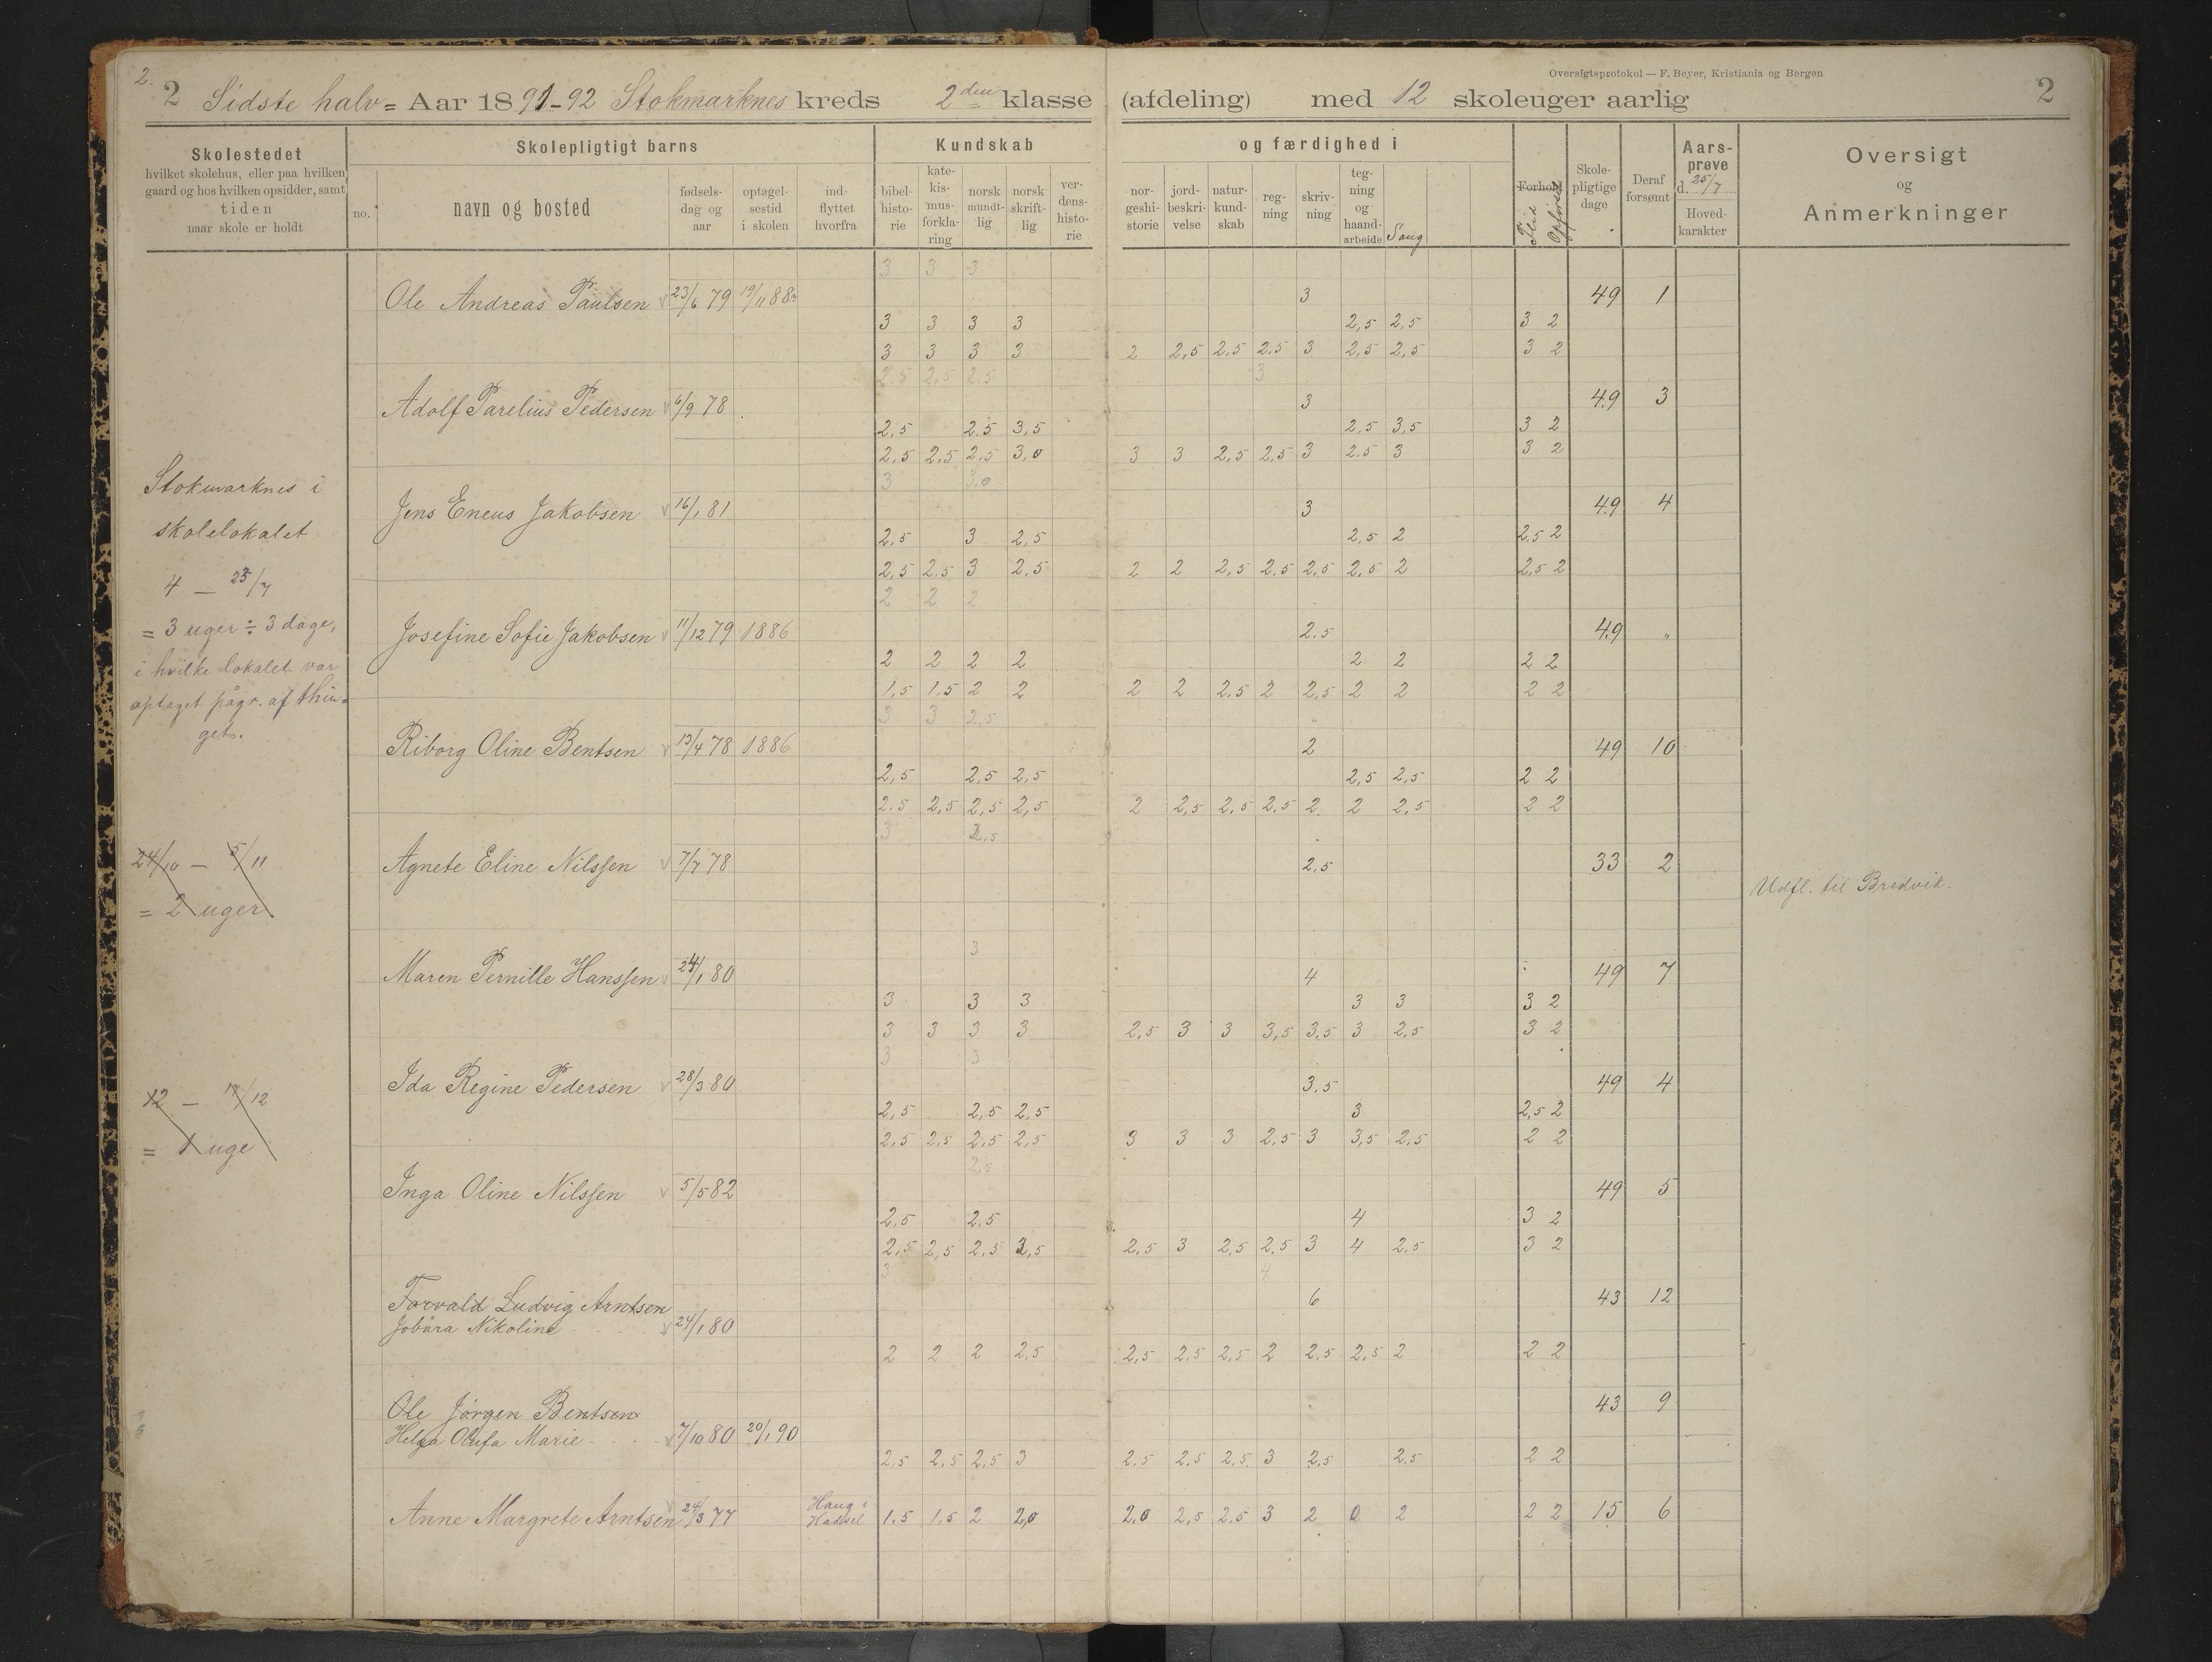 2.
2 Sidste halv= Aar 1891-92 Stokmarknes kreds 2den klasse (afdeling) med 12 skoleuger aarlig 2
Oversigtsprotokol — F. Beyer, Kristiania og Bergen
Skolestedet
hvilket skolehus, eller paa hvilken
gaard og hos hvilken opsidder, samt
tiden
naar skole er holdt
Skolepligtigt barns
no.
navn og bosted
fødsels-
dag og
aar
optagel-
sestid
i skolen
ind-
flyttet
hvorfra
Kundskab
bibel-
histo-
rie
kate-
kis-
mus-
forkla-
ring
norsk
mundt-
lig
norsk
skrift-
lig
ver-
dens-
histo-
rie
og færdighed i
nor-
geshi-
storie
jord-
beskri-
velse
natur-
kund-
skab
reg-
ning
skriv-
ning
teg-
ning
og
haand-
arbeide
Sang
Forhold
Flid
Opførsel
Skole-
pligtige
dage
Deraf
forsømt
Aars-
prøve
d. 25/7
Hoved-
karakter
Oversigt
og
Anmerkninger
Stokmarknes i
skolelokalet
4 — 23/7
= 3 uger ÷ 3 dage,
i hvilke lokalet var
optaget pågr. af thin=
get.
24/10 — 5/11
= 2 uger
12 — 17/12
= 1 uge
3 3 3
Ole Andreas Paulsen 23/6 79 19/11 88 3 49 1
3 3 3 3 2,5 2,5 3 2
3 3 3 3 2 2,5 2,5 2,5 3 2,5 2,5 3 2
2.5 2.5 2.5 3
Adolf Parelius Pedersen 6/9 78 3 49 3
2,5 2,5 3,5 2,5 3,5 3 2
2,5 2,5 2,5 3,0 3 3 2,5 2,5 3 2.5 3 3 2
3 3.0
Jens Eneus Jakobsen 16/1 81 3 49 4
2,5 3 2,5 2,5 2 2,5 2
2,5 2.5 3 2,5 2 2 2,5 2,5 2,5 2,5 2 2,5 2
2 2 2
Josefine Sofie Jakobsen 11/12 79 1886 2.5 49 "
2 2 2 2 2 2 2 2
1,5 1,5 2 2 2 2 2.5 2 2,5 2 2 2 2
3 3 2.5
Riborg Oline Bentsen 13/4 78 1886 2 49 10
2,5 2,5 2,5 2,5 2,5 2 2
2.5 2,5 2,5 2,5 2 2,5 2,5 2,5 2 2 2,5 2 2
3 2,5
Agnete Eline Nilssen 7/7 78 2,5 33 2
Udfl. til Bredvik.
3
Maren Pernille Hanssen 24/1 80 4 49 7
3 3 3 3 3 3 2
3 3 3 3 2,5 3 3 3,5 3,5 3 2,5 3 2
3 3
Ida Regine Pedersen 28/3 80 3.5 49 4
2,5 2,5 2,5 3 2,5 2
2,5 2,5 2,5 2,5 3 3 3 2,5 3 3,5 2,5 2 2
2,5
Inga Oline Nilssen 5/5 82 49 5
2,5 2.5 4 3 2
2,5 2,5 2,5 3,5 2,5 3 2,5 2,5 3 4 2,5 3 2
3 4
Torvald Ludvig Arntsen 6 43 12
Jobara Nikoline 24/1 80
2 2 2 2,5 2,5 2.5 2,5 2 2,5 2,5 2 2 2
Ole Jørgen Bentsen 43 9
Helga Olufa Marie 7/10 80 20/1 90
2.5 2,5 2,5 3 2.5 2.5 2,5 3 2,5 2,5 2 2
Haug i
Anne Margrete Arntsen 24/3 77 Hadsel 1.5 1.5 2 2,0 2,0 2,5 2,5 3 2 0 2 2 2 15 6